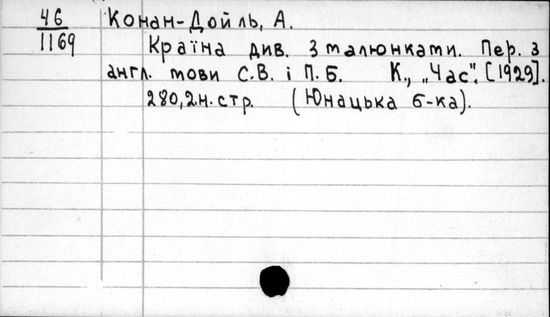 46
1169
Конан-Дойль, А.
Країна див. З малюнками. Пер. з
англ. мови С.В. і П.Б. К., „Час". [1929].
280,2н.стр. (Юнацька б-ка).